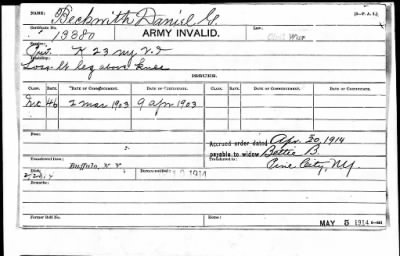 Beckwith Daniel G.
Certificate No. 13880 ARMY INVALID. Law Civil War
Service: Pvt. K 23 NY V.I
Disability: Loss lt leg above knee
ISSUES.
CLASS. RATE. DATE OF COMMENCEMENT. DATE OF CERTIFICATE. CLASS. RATE. DATE OF COMMENCEMENT. DATE OF CERTIFICATE.
Inc 46 2 mar 1903 9 apr 1903
Accrued order dated Apr. 30, 1914
payable to widow Bettie B.
Transferred from Buffalo, N.Y. Transferred to Pine City, NY.
Died:
Remarks:
Former Roll No. Home:
MAY 5 1914